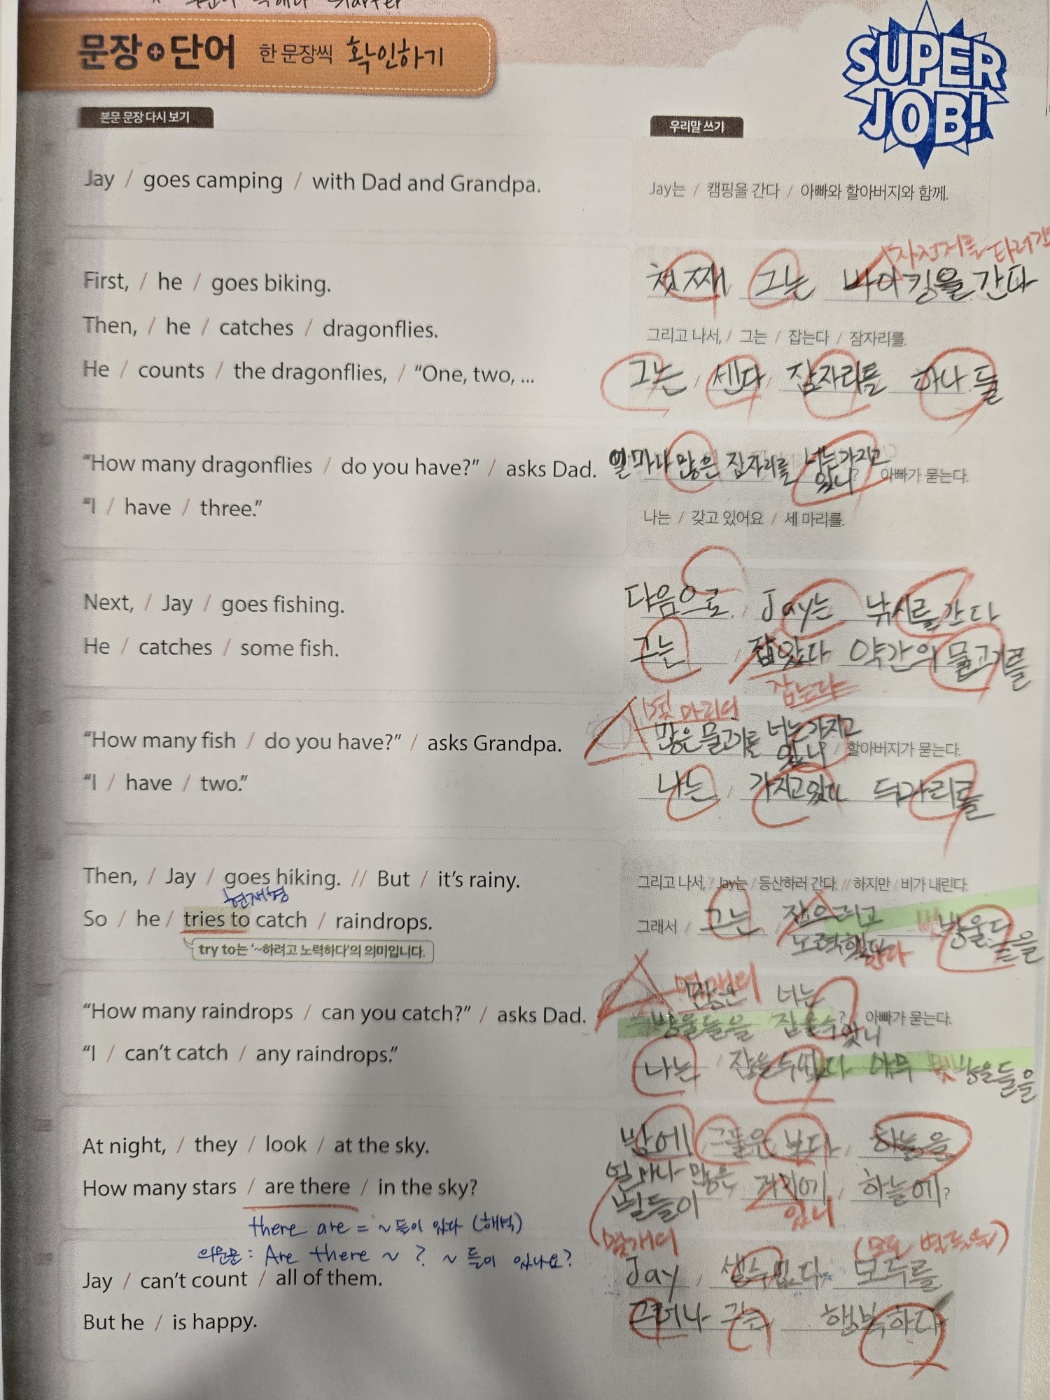 문장+단어 한 문장씩 확인하기
SUPER
JOB!
본문 문장 다시 보기
우리말 쓰기
Jay / goes camping / with Dad and Grandpa.
Jay는 / 캠핑을 간다 / 아빠와 할아버지와 함께.
자전거를 타러
First, / he / goes biking.
첫째 그는 바이킹을 간다
Then, / he / catches / dragonflies.
그리고 나서, / 그는 / 잡는다 / 잠자리를.
He / counts / the dragonflies, / “One, two, ...
그는 / 센다 / 잠자리를 하나 둘
“How many dragonflies / do you have?” / asks Dad.
얼마나 많은 잠자리를 너는 가지고 있니 ? 아빠가 묻는다.
“I / have / three.”
나는 / 갖고 있어요 / 세 마리를.
Next, / Jay / goes fishing.
다음으로 / Jay는 낚시를 간다
He / catches / some fish.
그는 / 잡았다 약간의 물고기를
잡는다
몇 마리의
“How many fish / do you have?” / asks Grandpa.
많은 물고기를 너는 가지고 있니 / 할아버지가 묻는다.
“I / have / two.”
나는 / 가지고 있다 두마리를
Then, / Jay / goes hiking. // But / it’s rainy.
그리고 나서, / Jay는 / 등산하러 간다. // 하지만 / 비가 내린다.
현재형
So / he / tries to catch / raindrops.
그래서 / 그는 / 잡으려고 노력했다 방울들을
한다
try to는 ‘~하려고 노력하다’의 의미입니다.
“How many raindrops / can you catch?” / asks Dad.
많은 방울들을 너는 잡을수 있니 ? 아빠가 묻는다.
“I / can’t catch / any raindrops.”
나는 / 잡을수없다 아무 방울들을
At night, / they / look / at the sky.
밤에 / 그들은 본다 / 하늘을
How many stars / are there / in the sky?
얼마나 많은 별들이 거기에 / 하늘에?
있니
there are = ~들이 있다 (해석)
의문문 : Are there ~ ? ~ 들이 있나요?
Jay / can’t count / all of them.
Jay 셀수없다 모두를
But he / is happy.
그러나 그는 행복하다